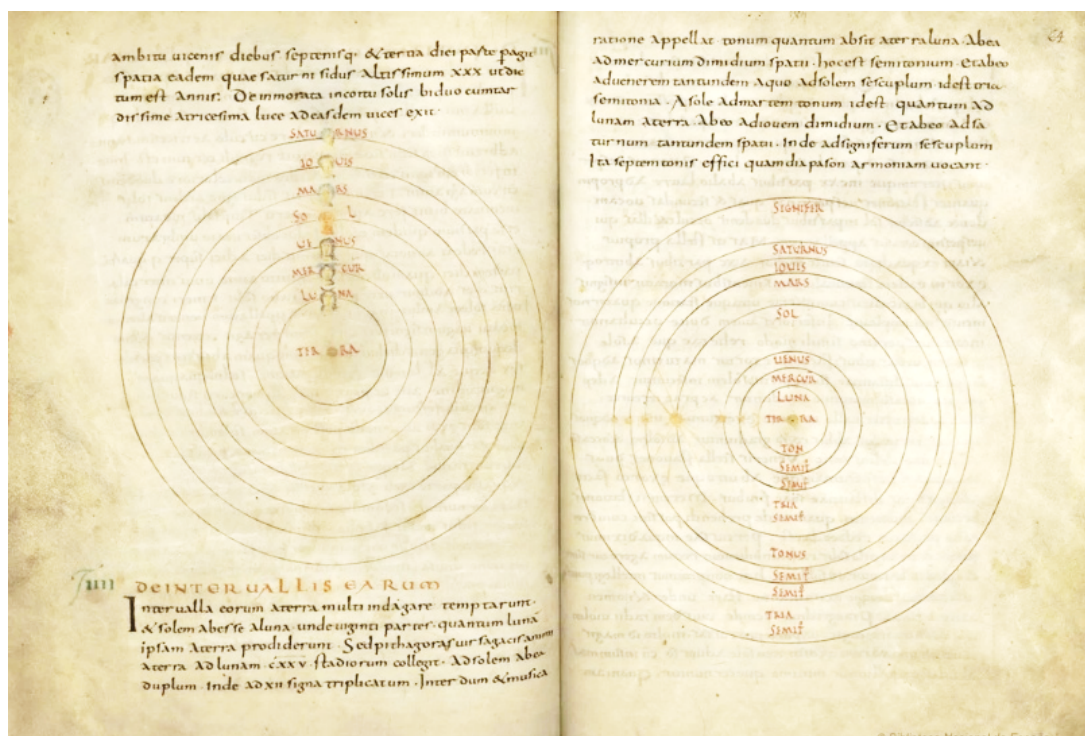 ambitu uicenis diebus septenisq· & tertia diei parte pagit
spatia eadem quae saturni sidus altissimum xxx ut dic
tum est annis· De inmorata incoitu solis biduo cum tar
dissime atricesima luce ad easdem uices exit·
SATURNUS
IOUIS
MARS
SOL
UENUS
MERCUR
LUNA
TERRA
IIII DE INTERUALLIS EARUM
Interualla eorum aterra multi indagare temptarunt·
& solem abesse aluna undeuiginti partes· quantum luna
ipsam aterra prodiderunt· Sed pithagoras uir sagacis animi
aterra ad lunam· cxxv· stadiorum collegit· Ad solem abea
duplum· Inde ad xii signa triplicatum· Inter dum & musica
ratione appellat tonum quantum absit aterra luna· Abea
ad mercurium dimidium spatii· hoc est semitonium· Et abeo
ad uenerem tantundem Aquo ad solem sescuplum· id est tria
semitonia· A sole ad martem tonum id est quantum ad
lunam aterra· Abeo ad iouem dimidium· Et abeo ad sa
turnum tantundem spatii· Inde ad signiferum sescuplum
Ita septem tonis effici quam diapason armoniam uocant·
64
SIGNIFER
SATURNUS
IOUIS
MARS
SOL
UENUS
MERCUR
LUNA
TERRA
TON
SEMIT
SEMIT
TRIA
SEMIT
TONUS
SEMIT
SEMIT
TRIA
SEMIT